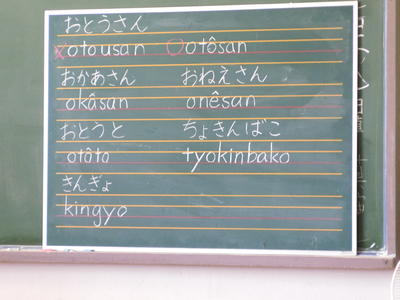 おとうさん
×otousan ○otôsan
おかあさん おねえさん
okâsan onêsan
おとうと ちょきんばこ
otôto tyokinbako
きんぎょ
kingyo